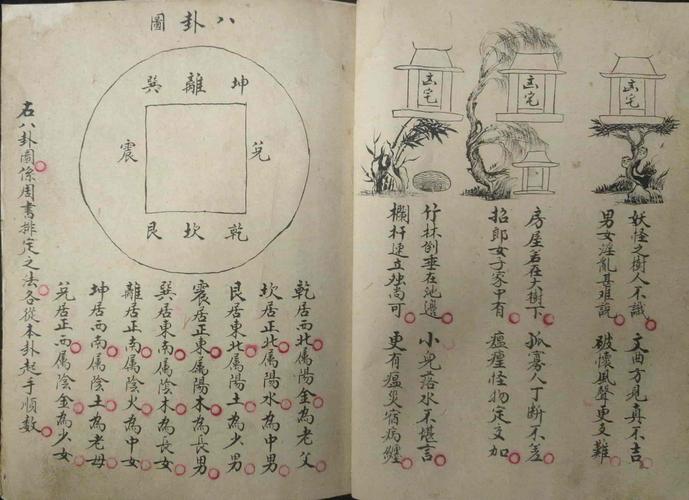 凶宅
凶宅
凶宅
妖怪之樹人不識 文曲方見真不吉
男女淫亂甚難說 破懷風聲更交難
房屋若在大樹下 孤寡人丁斷不差
招郎女子家中有 瘟怪物定交加
竹林倒垂在池邊 小兒落水不堪言
欄杆速立尚可 更有瘟災宿病纏
八卦圖
坤離巽
兌
震
乾坎艮
乾居西北属陽金為老父
坎居正北属陽水為中男
艮居東北属陽土為少男
震居正東属陽木為長男
巽居東南属陰木為長女
離居正南属陰火為中女
坤居西南属陰土為老母
兌居正西属陰金為少女
右八卦圖係周書排定之法各從本卦起手順數